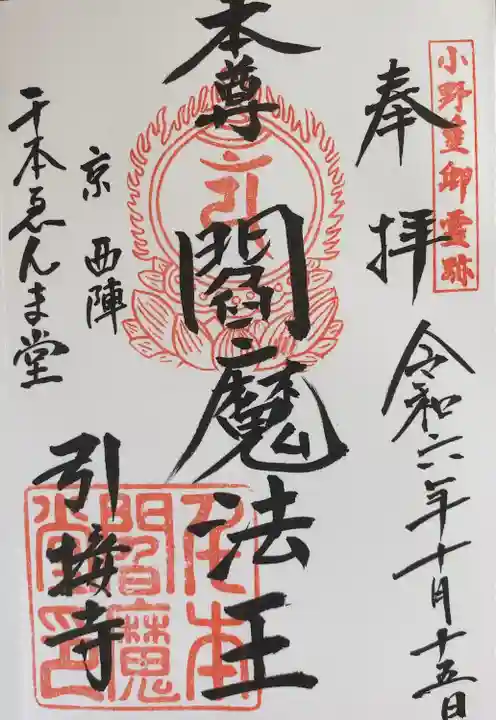 小野篁御霊跡
奉拝
令和六年十月十五日
本尊
閻魔法王
京 西陣
千本ゑんま堂
引接寺
千本閻魔堂印